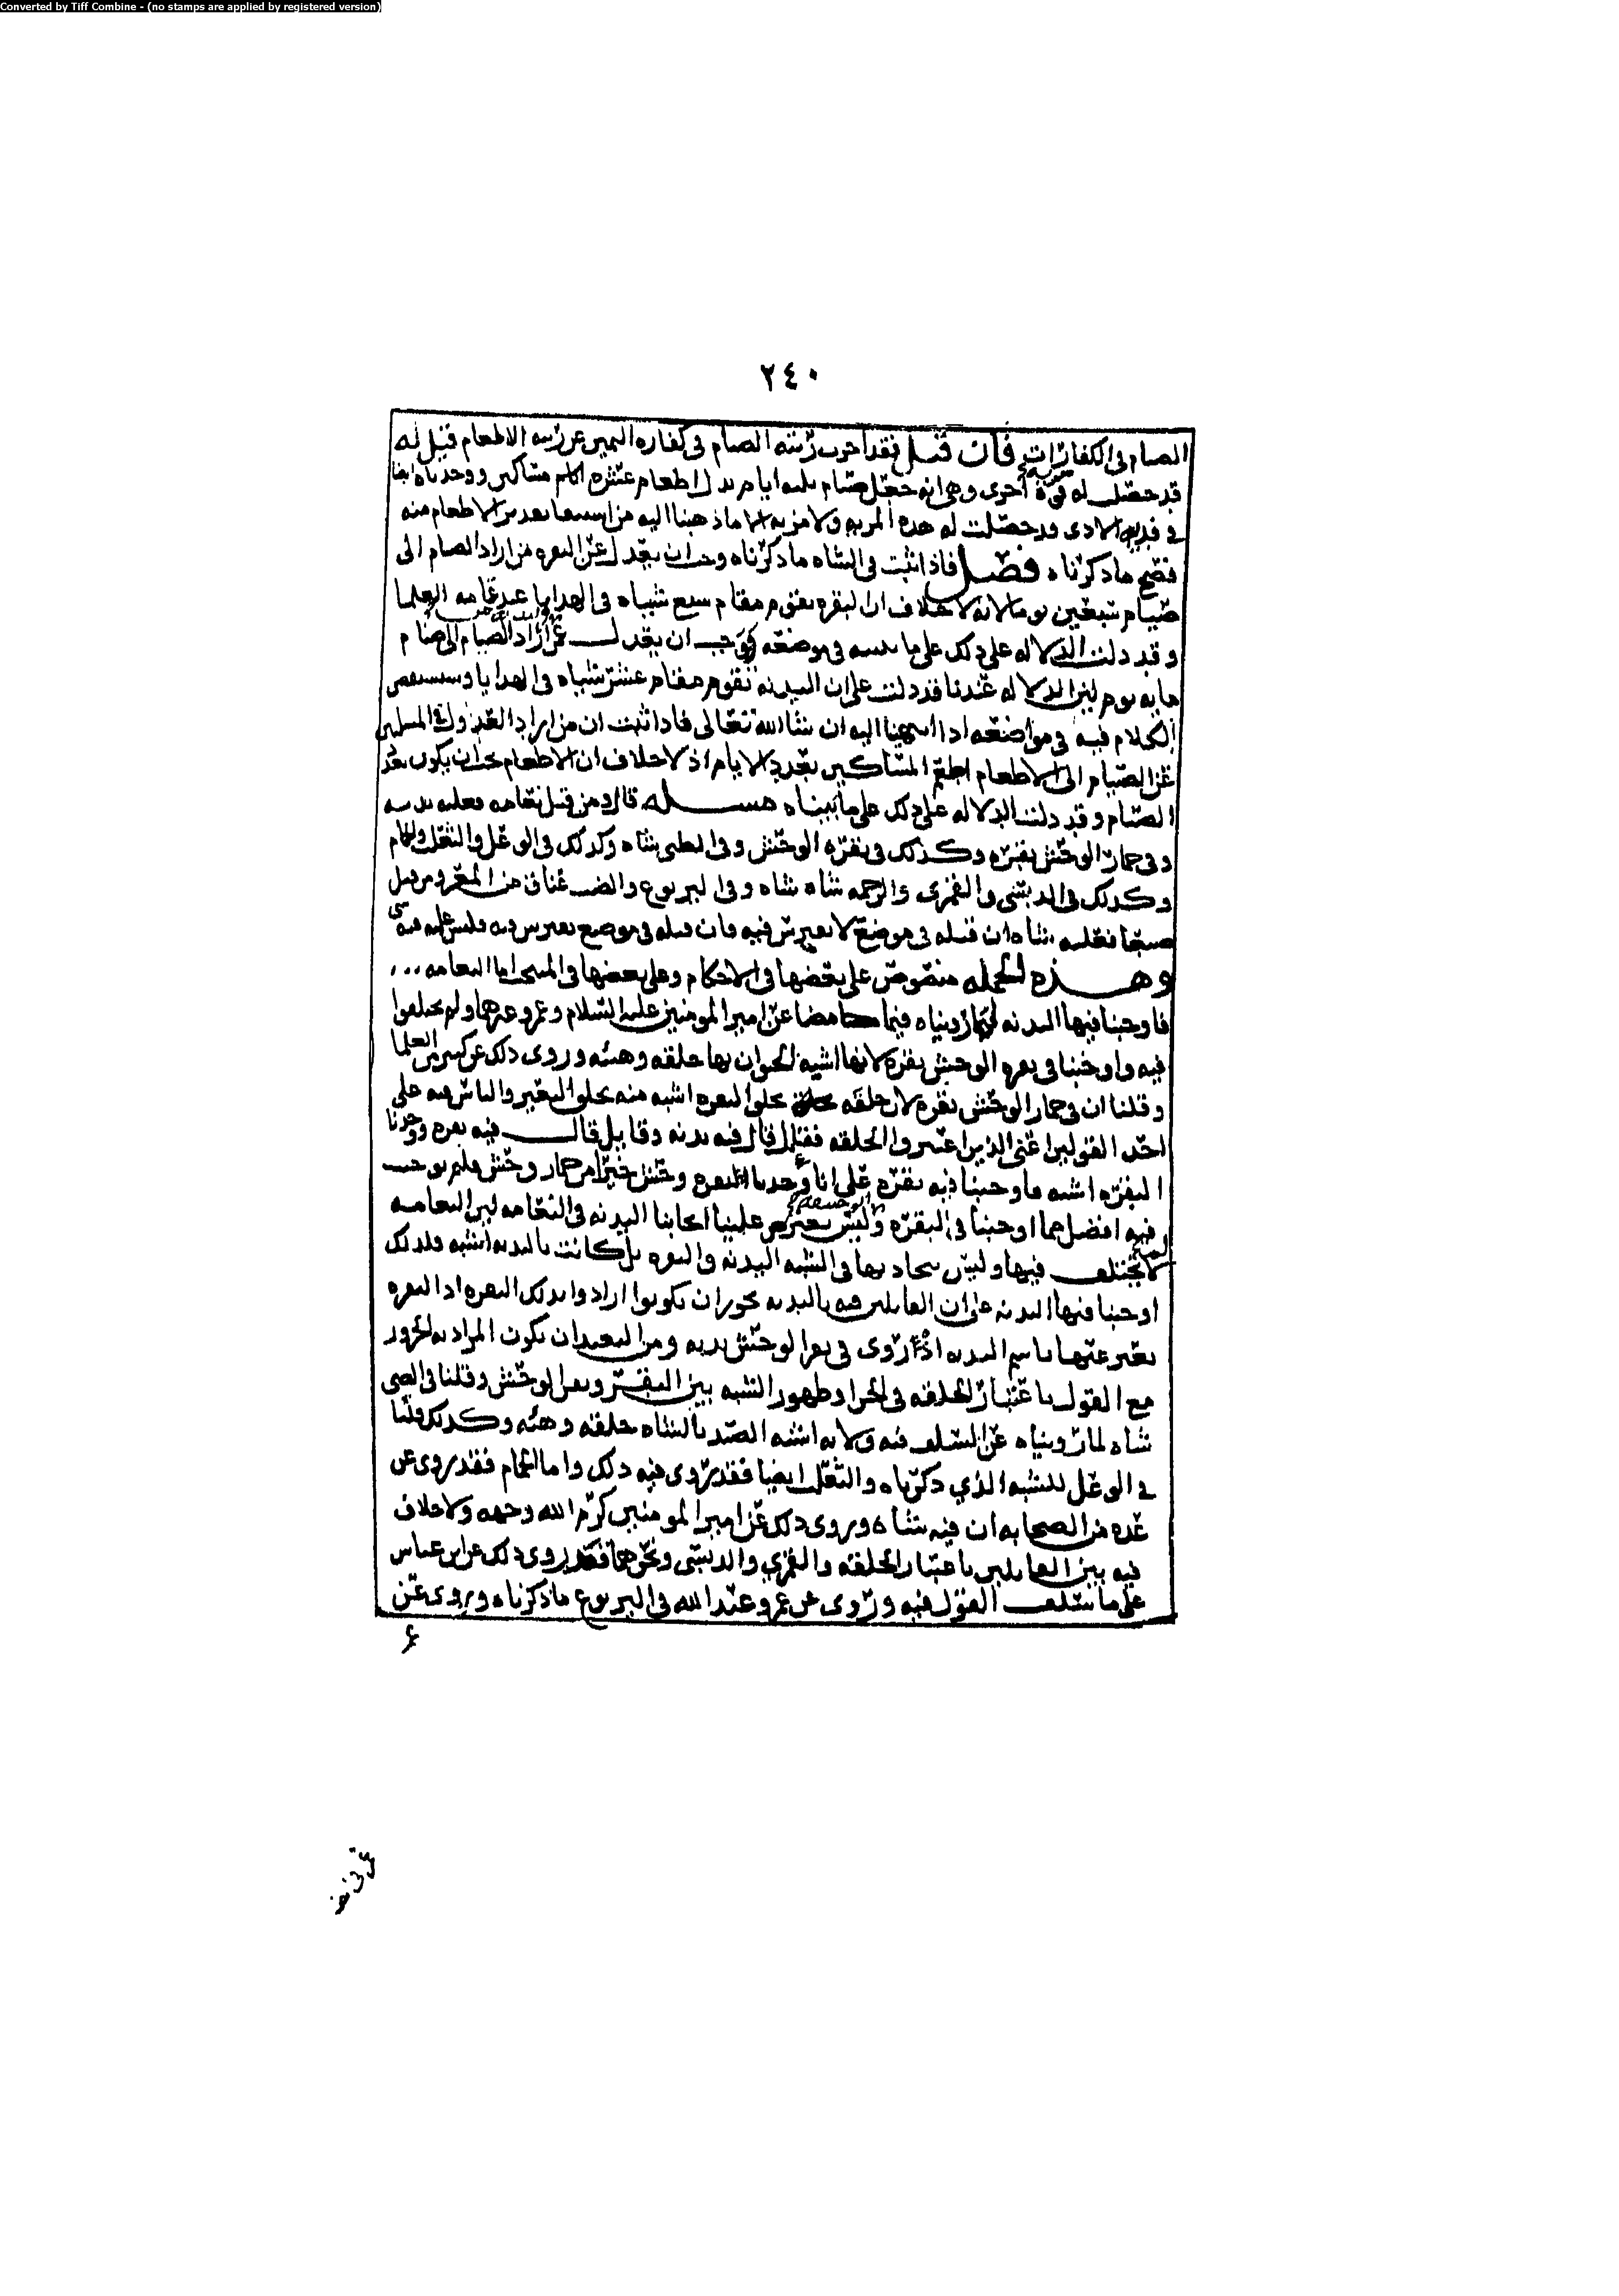 Converted by Tiff Combine - (no stamps are applied by registered version)
٢٤٠
الصيام في الكفارات فان قيل فقد اخرت رتبة الصيام في كفاره اليمين عن رتبه الاطعام قيل له
قد حصلت له مزية اخرى وهي انه جعل صيام ثلثه ايام بدل اطعام عشره مساكين ووجدناه ايضا
في فديه الاذى قد حصلت له هذه المزيه ولا مزيه الا ما ذهبنا اليه من الاطعام منه
فصح ما ذكرناه فصل فاذا ثبت في الشاه ما ذكرناه وجب ان يعدل عن البقره من اراد الصيام الى
صيام سبعين يوما لانه لا خلاف ان البقره تقوم مقام سبع شياه في الهدايا عند عامه العلما
وقد دلت الدلاله على ذلك على ما نبينه في موضعه فوجب ان يعدل من اراد الصيام الى صيام
مايه يوم لان الدلاله عندنا قد دلت على ان البدنه تقوم مقام عشر شياه في الهدايا وسنستقصي
الكلام فيه في مواضعه اذا انتهينا اليه ان شا الله تعالى فاذا ثبت ان من اراد العدول
عن الصيام الى الاطعام اطعم المساكين بعدد الايام اذ لا خلاف ان الاطعام يجب ان يكون بعدد
الصيام وقد دلت الدلاله على ذلك على ما بيناه مسله قال ومن قتل نعامه فعليه بدنه
وفي حمار الوحش بقره وكذلك في بقره الوحش وفي الظبي شاه وكذلك في الوعل والثعلب والحمام
وكذلك في الدبسي والقمري والرخمه شاه شاه وفي اليربوع والضب عناق من المعز ومن قتل
ضبعا فعليه شاه ان قتله في موضع لا يفترس فيه فان قتله في موضع يفترس فيه فليس عليه فيه شي
وهذه الجمله منصوص على بعضها في الاحكام وعلى بعضها في المنتخب اما النعامه
فاوجبنا فيها البدنه لما رويناه فيما مضا عن امير المومنين عليه السلام وعمر وغيرهما ولم يختلفوا
فيه واوجبنا في بقره الوحش بقره لانها اشبه الحيوان بها خلقه وهيئه وروي ذلك عن كثير من العلما
وقلنا ان في حمار الوحش بقره لان خلقه بخلق البقره اشبه منه بخلق البعير والناس فيه على
احد القولين اعني الذين اعتبروا الخلقه فقايل قال فيه بدنه وقايل قال فيه بقره ووجدنا
البقره اشبه فاوجبنا فيه بقره على انا وجدنا البقره وحش خيرا من حمار وحش ولم نوجب
فيه افضل مما اوجبنا في البقره الوحشيه وليس يعترض علينا ايجابنا البدنه في النعامه لان النعامه
لا يختلف فيها وليس يتجاذبها في الشبه البدنه والبقره بل كانت بالبدنه اشبه فلذلك
اوجبنا فيها البدنه على ان القايلين فيه بالبدنه يجوز ان يكونوا ارادوا بذلك البقره اذ البقره
يعبر عنها باسم البدنه اذ روى في بقر الوحش بدنه ومن البعيد ان يكون المراد به الجزور
مع القول باعتبار الخلقه في الجزا وظهور الشبه بين البقر وبقر الوحش وقلنا في الظبي
شاه لما رويناه عن السلف فيه ولانه اشبه الصيد بالشاه خلقه وهيئه وكذلك قلنا
في الوعل للشبه الذي ذكرناه والثعلب ايضا فقد روى فيه ذلك واما الحمام فقد روى عن
عده من الصحابه ان فيه شاه وروى ذلك عن امير المومنين كرم الله وجهه ولا خلاف
فيه بين القايلين باعتبار الخلقه والقمري والدبسي ونحوهما فقد روى ذلك عن ابن عباس
على ما سلف القول فيه وروى عن عمر وعبد الله في اليربوع ما ذكرناه وروى عن